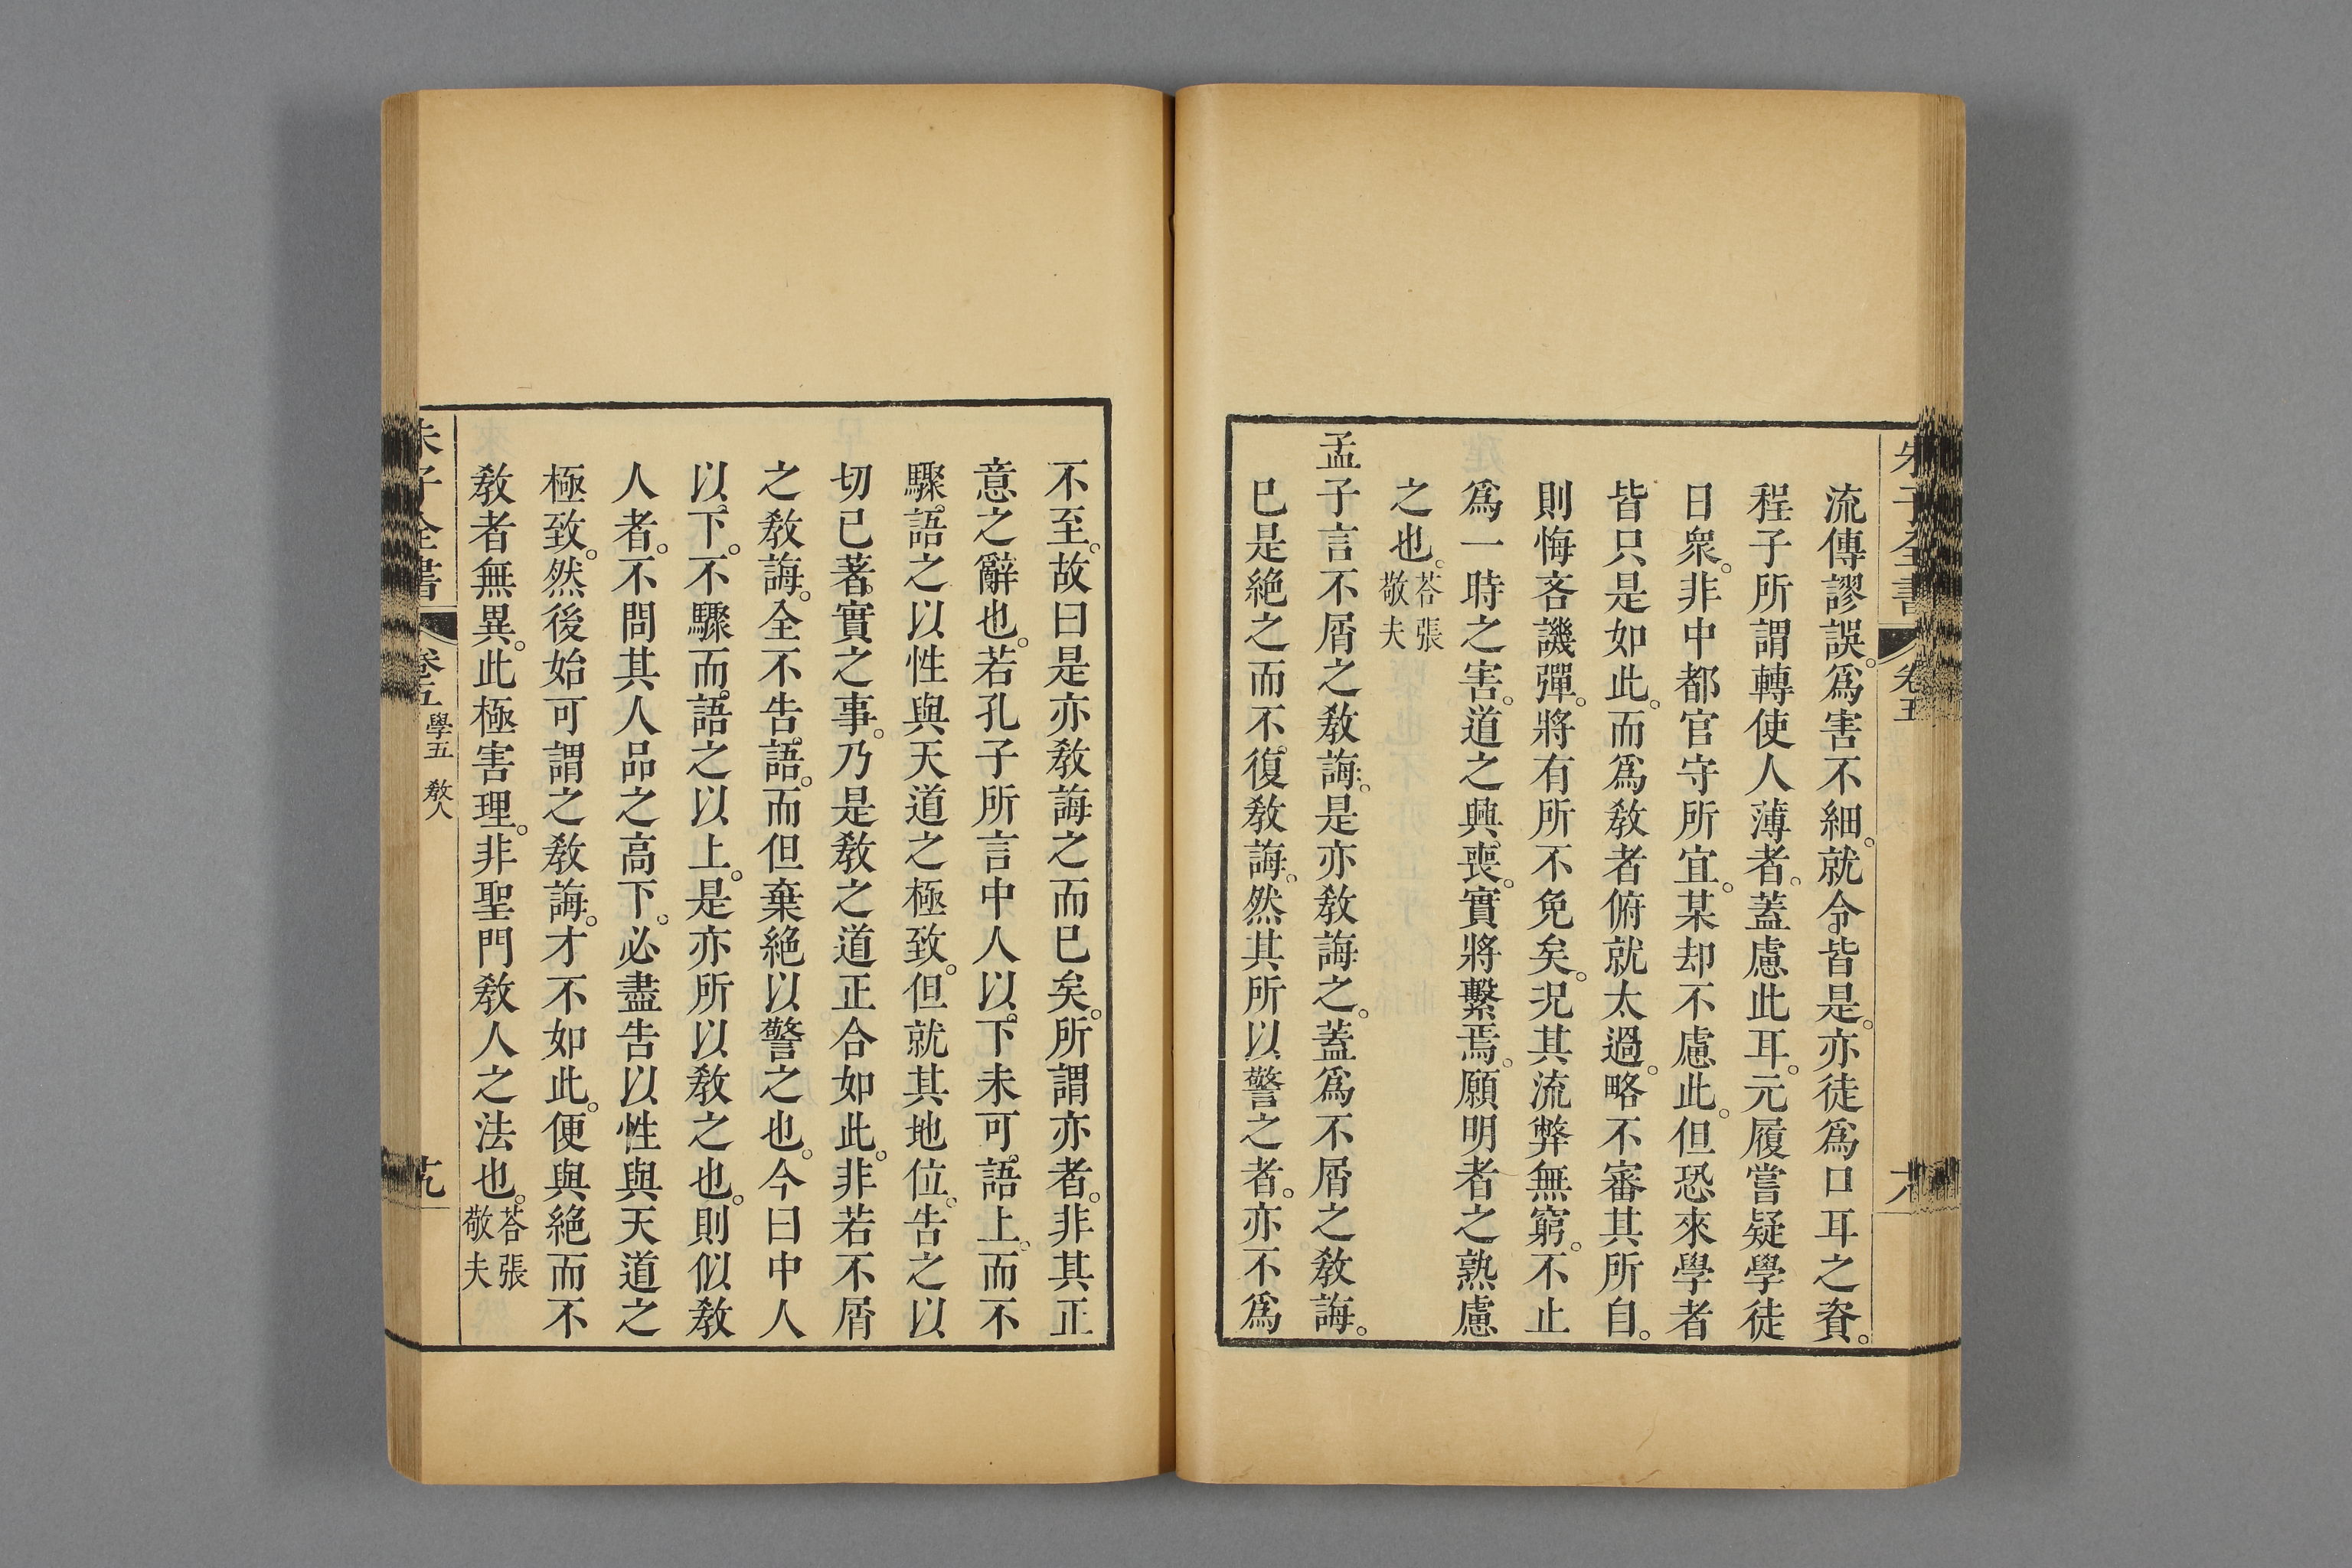 流傳謬誤。爲害不細。就令皆是。亦徒爲口耳之資。
程子所謂轉使人薄者。蓋慮此耳。元履嘗疑學徒
日衆。非中都官守所宜。某却不慮此。但恐來學者
皆只是如此。而爲敎者俯就太過。略不審其所自。
則悔吝譏彈。將有所不免矣。況其流弊無窮。不止
爲一時之害。道之興喪。實將繫焉。願明者之熟慮
之也。荅張敬夫
孟子言不屑之敎誨。是亦敎誨之。蓋爲不屑之敎誨。
已是絶之而不復敎誨。然其所以警之者。亦不爲
不至。故曰是亦敎誨之而已矣。所謂亦者。非其正
意之辭也。若孔子所言中人以下未可語上。而不
驟語之以性與天道之極致。但就其地位。告之以
切已著實之事。乃是敎之道正合如此。非若不屑
之敎誨。全不告語。而但棄絶以警之也。今曰中人
以下。不驟而語之以上。是亦所以敎之也。則似敎
人者。不問其人品之高下。必盡告以性與天道之
極致。然後始可謂之敎誨。才不如此。便與絶而不
敎者無異。此極害理。非聖門敎人之法也。荅張敬夫
朱子全書 卷五 學五 敎人